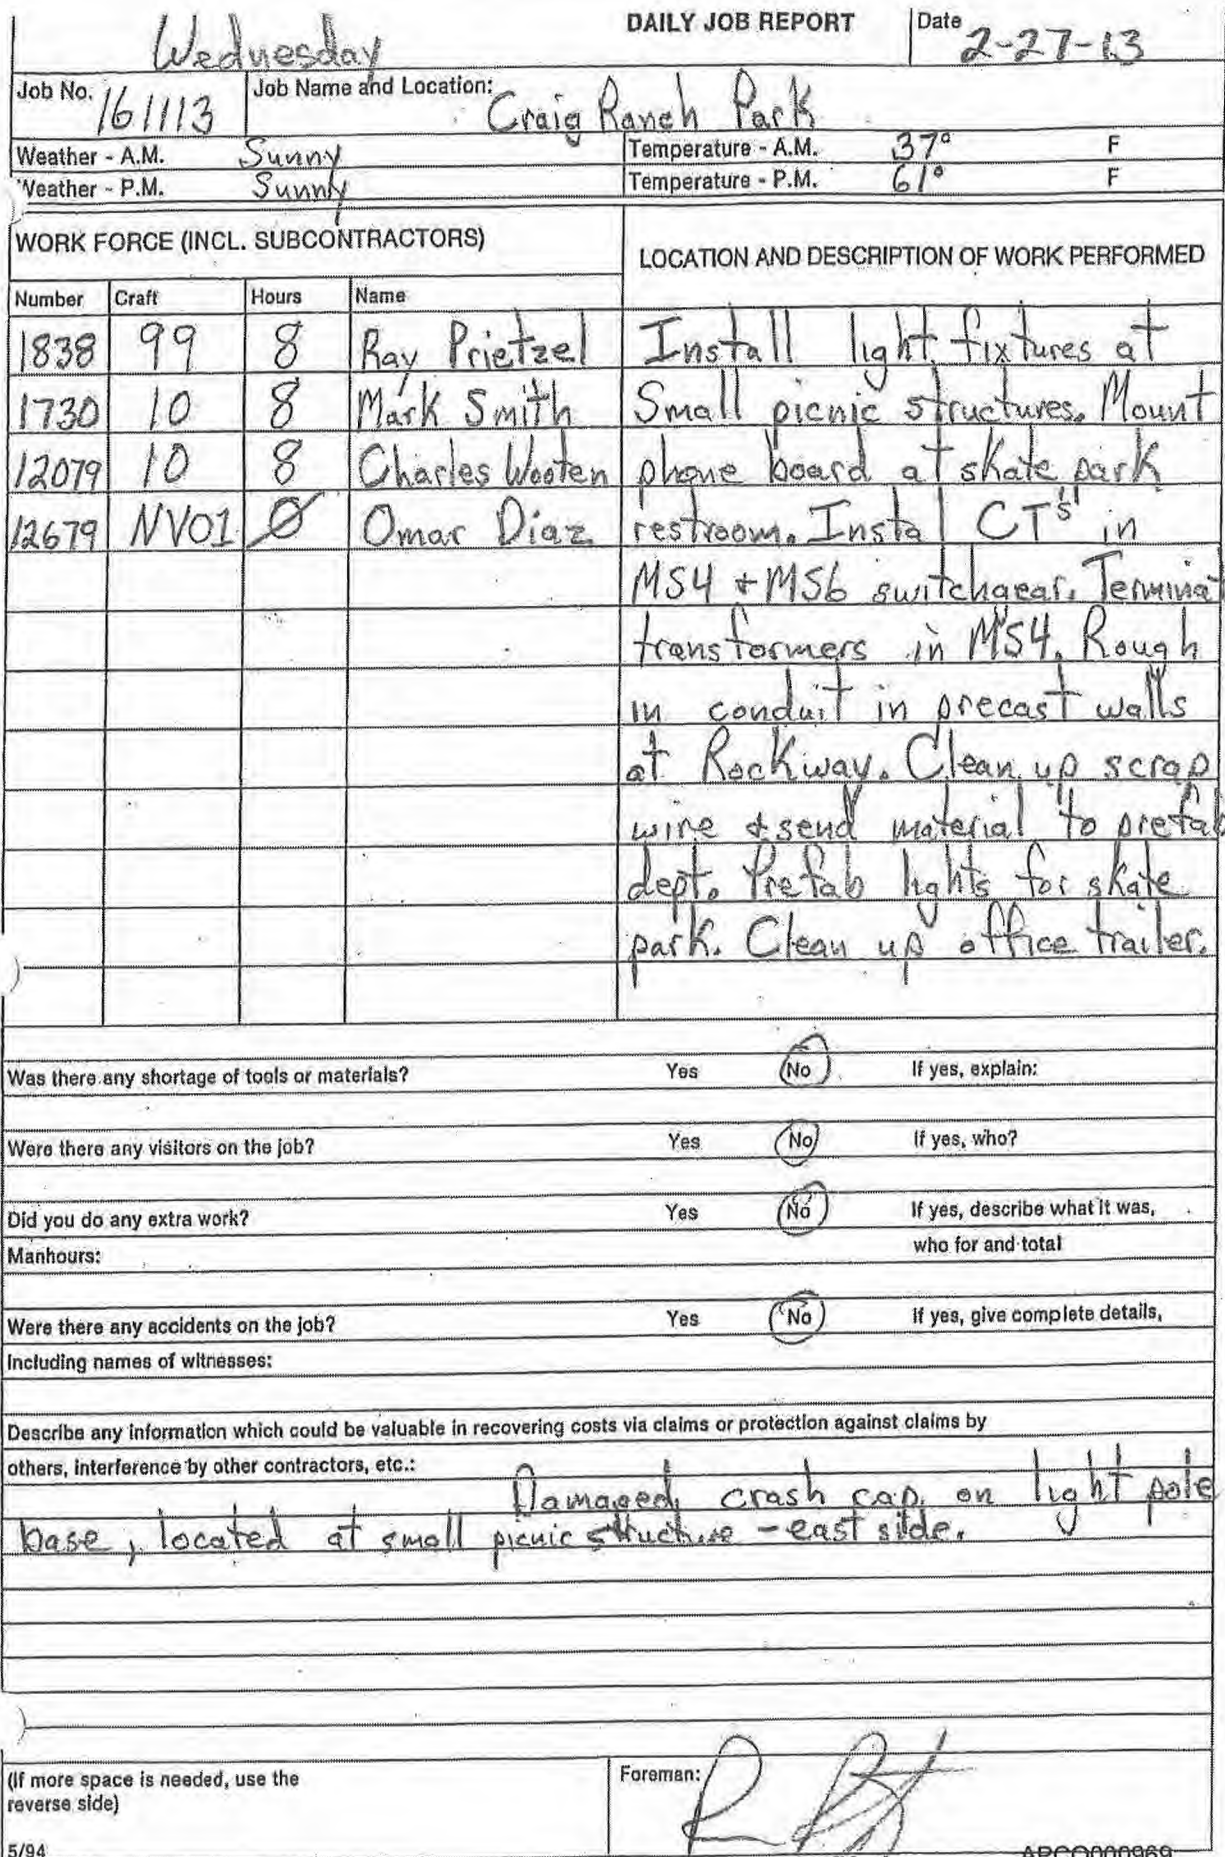 DAILY JOB REPORT
Wednesday
Date 2-27-13
Job No. 161113 Job Name and Location: Craig Ranch Park
Weather - A.M. Sunny Temperature - A.M. 37° F
Weather - P.M. Sunny Temperature - P.M. 61° F
WORK FORCE (INCL. SUBCONTRACTORS)
LOCATION AND DESCRIPTION OF WORK PERFORMED
Number Craft Hours Name
1838 99 8 Ray Prietzel Install light fixtures at
1730 10 8 Mark Smith Small picnic structures. Mount
12079 10 8 Charles Wooten phone board at skate park
12679 NV01 Ø Omar Diaz restroom. Instal CT's in
MS4 + MS6 switchgear. Terminat
transformers in MS4. Rough
in conduit in precast walls
at Rockway. Clean up scrap
wire & send material to prefab
dept. Prefab lights for skate
park. Clean up office trailer.
Was there any shortage of tools or materials? Yes No If yes, explain:
Were there any visitors on the job? Yes No If yes, who?
Did you do any extra work? Yes No If yes, describe what it was,
Manhours: who for and total
Were there any accidents on the job? Yes No If yes, give complete details,
Including names of witnesses:
Describe any information which could be valuable in recovering costs via claims or protection against claims by
others, interference by other contractors, etc.: Damaged crash cap on light pole
base, located at small picnic structure - east side.
(If more space is needed, use the
reverse side)
Foreman:
5/94
APCO000969